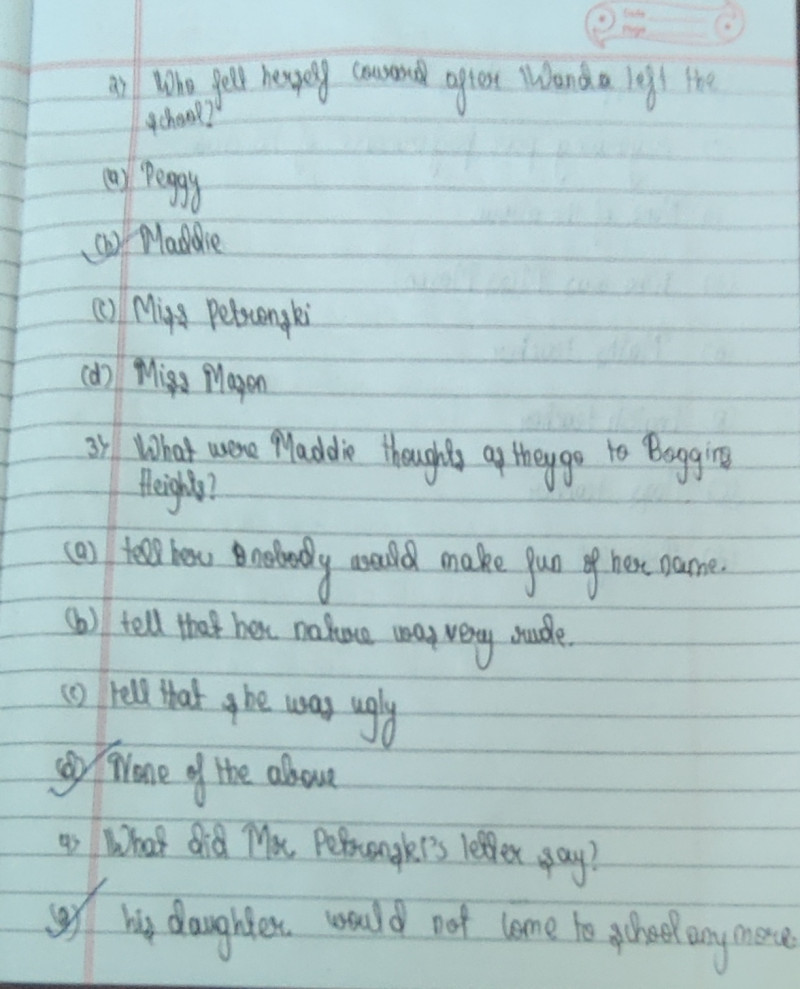 Date
Page
2) Who fell herself coward after Wanda left the
school?
(a) Peggy
(b) Maddie
(c) Miss Petronski
(d) Miss Mason
3) What were Maddie thoughts as they go to Boggins
Heights?
(a) tell her nobody would make fun of her name.
(b) tell that her nature was very rude.
(c) tell that she was ugly
(d) None of the above
4) What did Mr. Petronski's letter say?
(a) his daughter would not come to school any more.